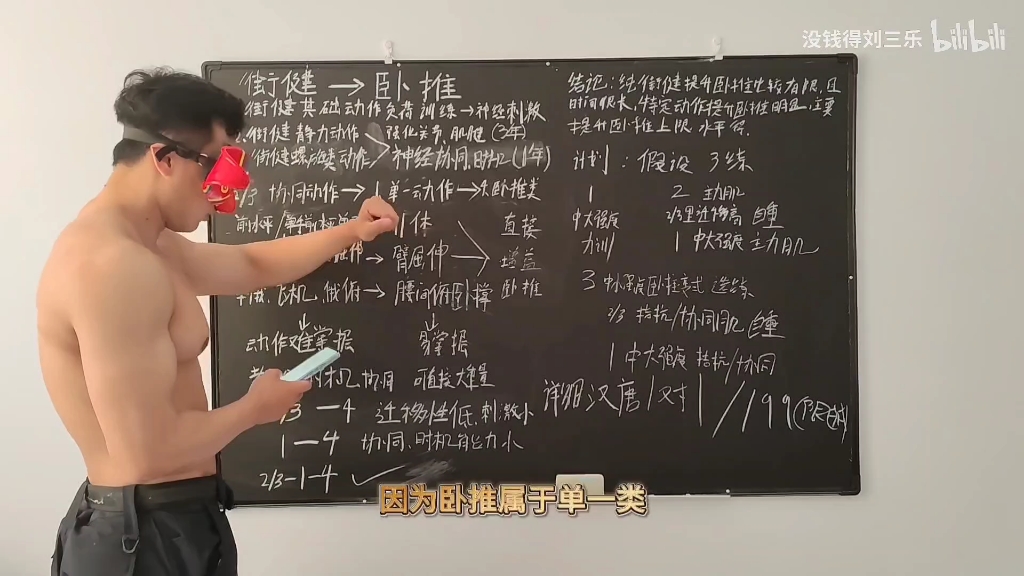 没钱得刘三乐 bilibili
街健→卧推
街健基础动作负荷训练→神经刺激
街健静力动作 强化关节、肌腱(3年)
街健螺旋类动作 神经协同、时机(1年)
/3 协同动作→1 单一动作→大卧推类
体 直接
→臂屈伸 增益
飞机、俄俯→腰间俯卧撑 卧推
动作难掌握 易掌握
机协同 可直接大量
/3—4 迁移性低、刺激小
1—4 协同、时机能力小
2/3—1—4
结论:纯街健提升卧推比较有限,且
时间很长,特定动作提升卧推明显,主要
提升卧推上限、水平
计划:假设 3练
1 2 主动肌
中大强度
力训 1 中大强度 主动肌
3 中小强度卧推变式 选练
2/3 拮抗/协同肌 自重
1 中大强度 拮抗/协同
详细汉唐1对1/199
因为卧推属于单一类